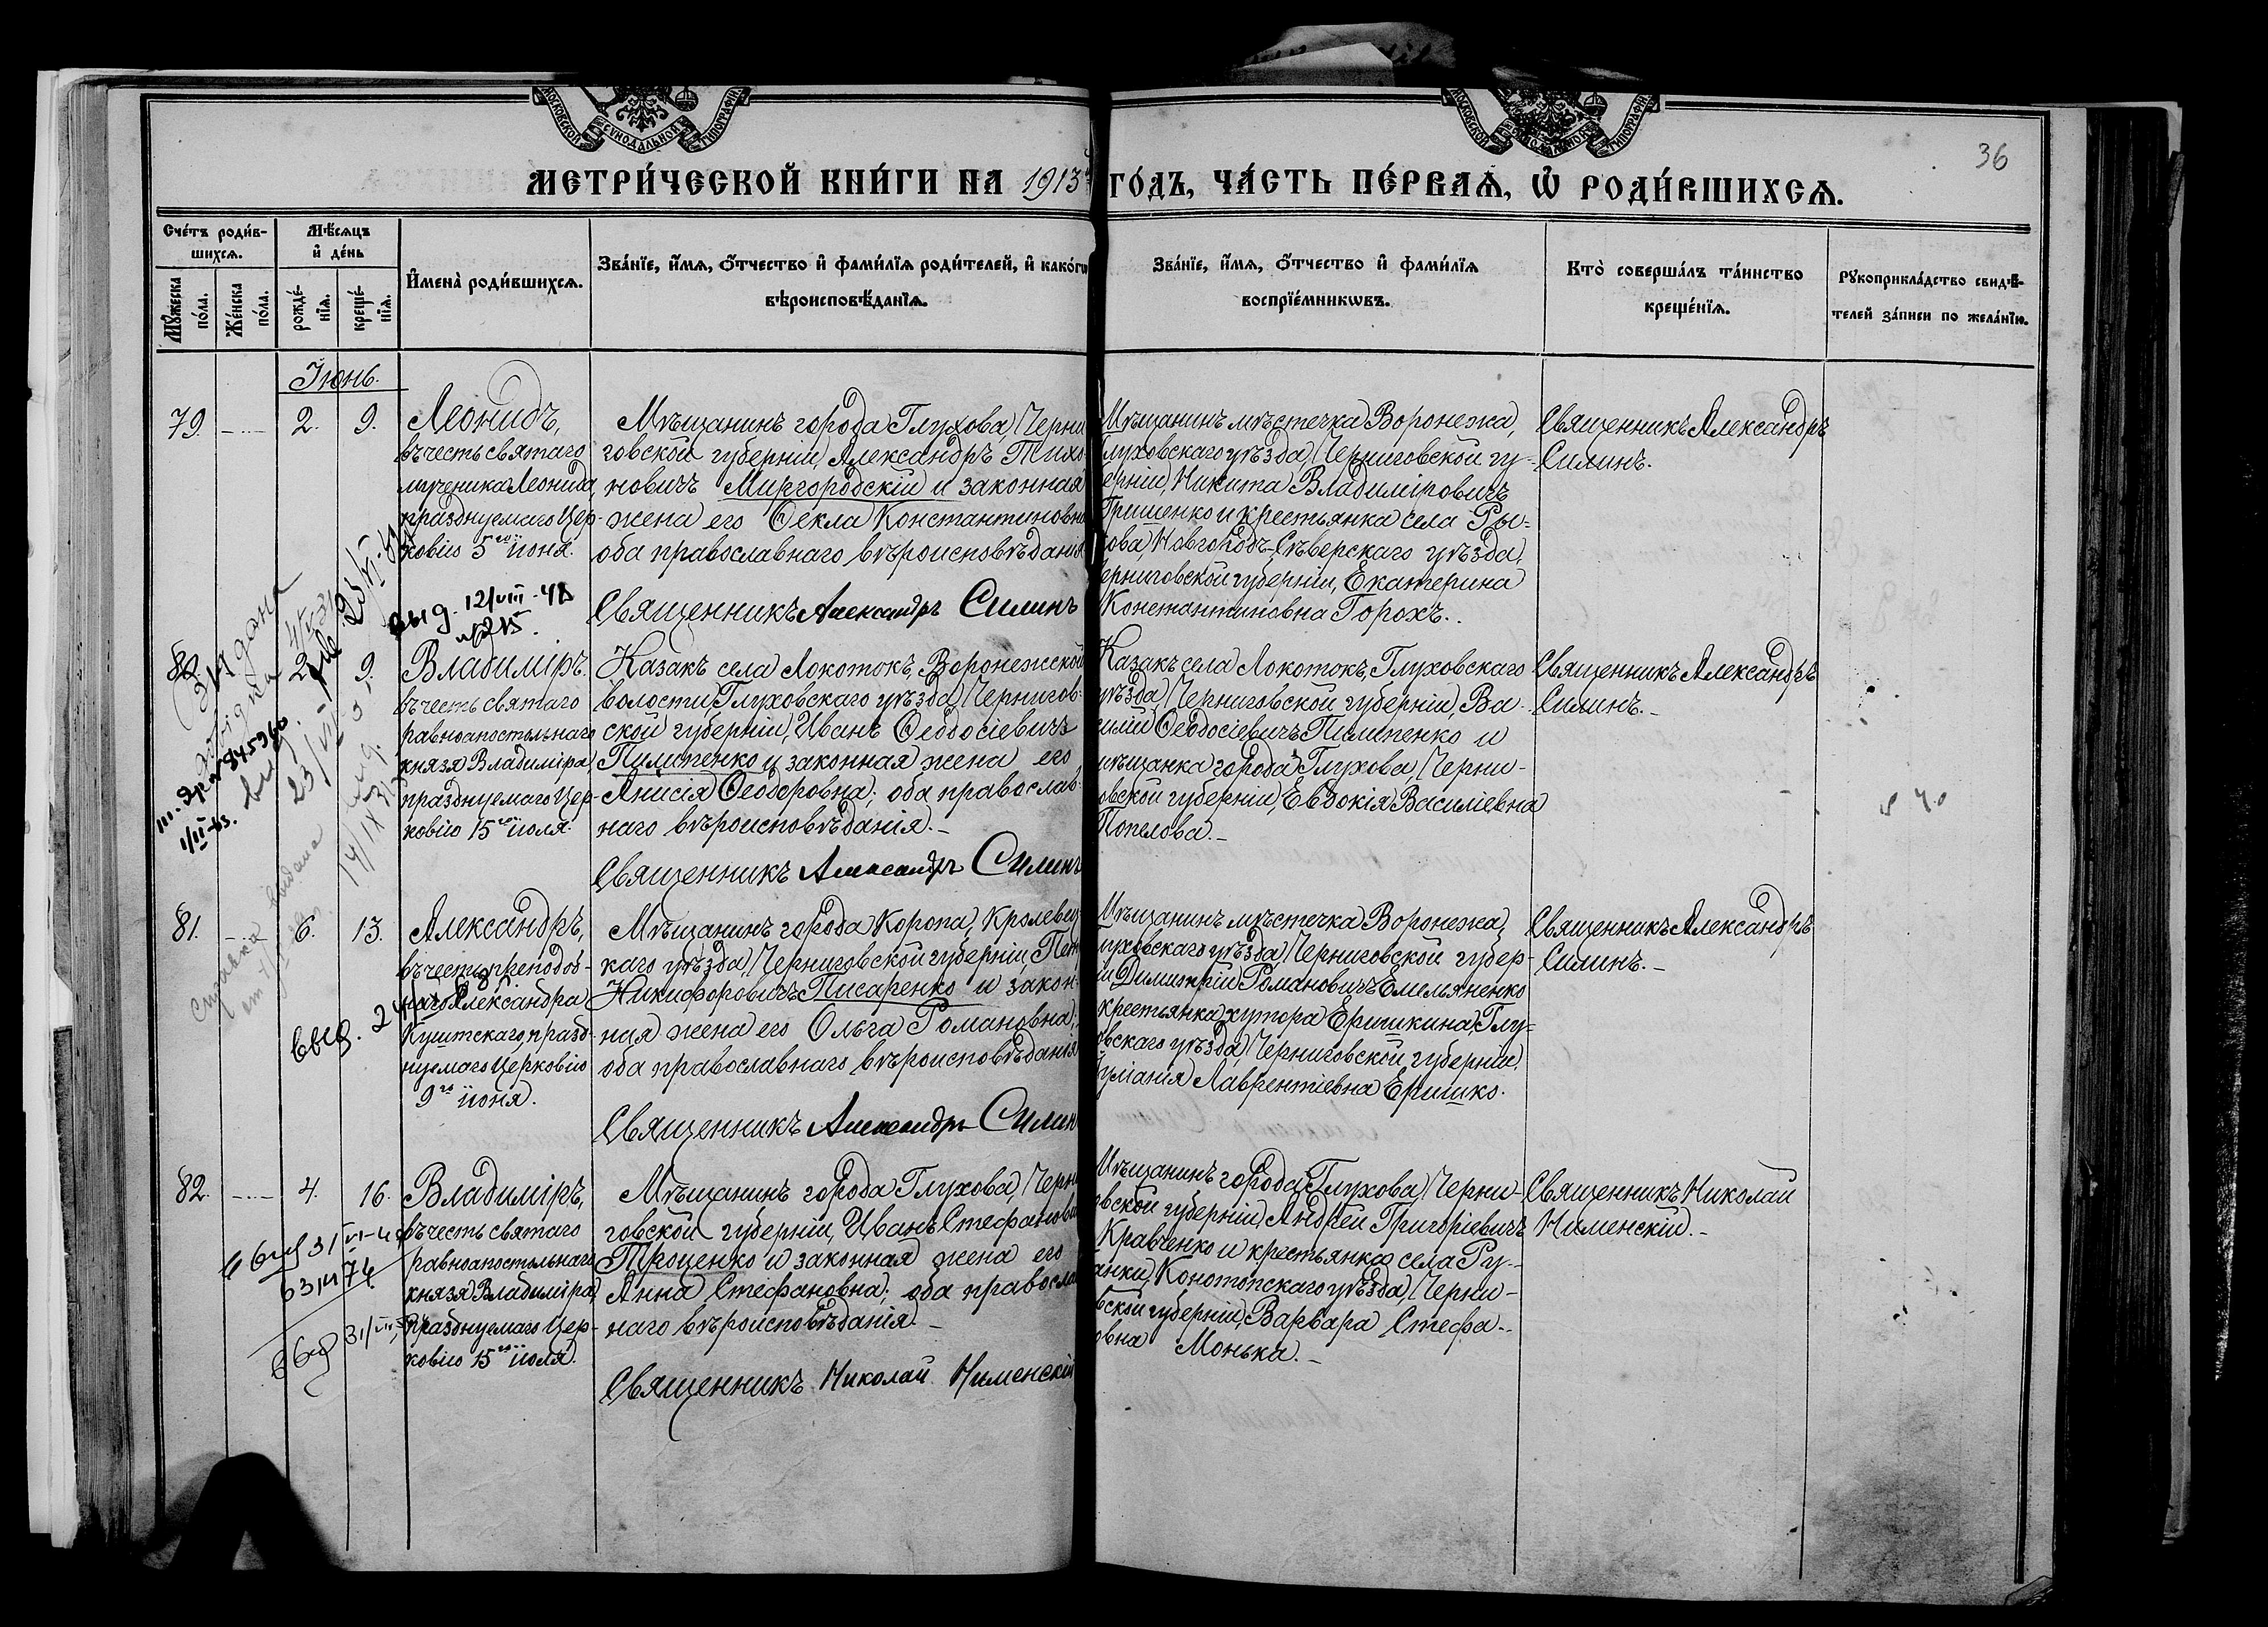 МОСКОВСКОЙ СѴНОДАЛЬНОЙ ТИПОГРАФІИ
МОСКОВСКОЙ СѴНОДАЛЬНОЙ ТИПОГРАФІИ
36
МЕТРИ́ЧЕСКОЙ КНИ́ГИ НА 1913й ГО́ДЪ, ЧА́СТЬ ПЕ́РВАѦ, Ѡ РОДИ́ВШИХСѦ.
Сче́тъ роди́в-
шихсѧ.
Мꙋ́жеска по́ла.
Же́нска по́ла.
Мѣ́сѧцъ
и҆ де́нь
рожде́-
нїѧ.
креще́-
нїѧ.
И҆мена̀ роди́вшихсѧ.
Зва́нїе, и҆́мѧ, ѻ҆́тчество и҆ фами́лїѧ роди́телей, и҆ како́гѡ
вѣроисповѣ́данїѧ.
Зва́нїе, и҆́мѧ, ѻ҆́тчество и҆ фами́лїѧ
воспрїе́мникѡвъ.
Кто̀ соверша́лъ та́инство
креще́нїѧ.
Рꙋкоприкла́дство свидѣ́-
телей за́писи по жела́нїю.
Іюнь.
79.
2.
9.
Леонидъ,
въ честь святаго
мученика Леонида,
празднуемаго Цер-
ковію 5го іюня.
Мѣщанинъ города Глухова, Черни
говской губерніи, Александръ Тихо
новичъ Миргородскій и законная
жена его Ѳекла Константиновна
оба православнаго вѣроисповѣданія
Священникъ Александръ Силинъ
Мѣщанинъ мѣстечка Воронежа,
Глуховскаго уѣзда, Черниговской гу-
берніи, Никита Владиміровичъ
Гришенко и крестьянка села Ры-
кова, Новгородъ-Сѣверскаго уѣзда,
Черниговской губерніи, Екатерина
Константиновна Горохъ.
Священникъ Александръ
Силинъ.
выд. 12/VIII-48
80.
2.
9.
Владиміръ,
въ честь святаго
равноапостольнаго
князя Владиміра,
празднуемаго Цер-
ковію 15го іюля.
Казакъ села Локотокъ, Воронежской
волости, Глуховскаго уѣзда, Чернигов-
ской губерніи, Иванъ Ѳеодосіевичъ
Пилипенко и законная жена его
Анисія Ѳеодоровна; оба православ-
наго вѣроисповѣданія.
Священникъ Александръ Силинъ
Казакъ села Локотокъ, Глуховскаго
уѣзда, Черниговской губерніи, Ва-
силій Ѳеодосіевичъ Пилипенко и
мѣщанка города Глухова, Черни-
овской губерніи, Евдокія Василіевна
Попелова.
Священникъ Александръ
Силинъ.
81.
6.
13.
Александръ,
въ честь преподоб-
наго Александра
Куштскаго, празд-
нуемаго Церковію
9го іюня.
Мѣщанинъ города Коропа, Кролевец
каго уѣзда, Черниговской губерніи, Петр
Никифоровичъ Писаренко и закон-
ная жена его Ольга Романовна;
оба православнаго вѣроисповѣданія
Священникъ Александръ Силин
Мѣщанинъ мѣстечка Воронежа,
луховскаго уѣзда, Черниговской губер-
іи Димитрій Романовичъ Емельяненко
крестьянка хутора Ершикина, Глу-
овскаго уѣзда, Черниговской губерніи,
Лаврентіевна Еришко.
Священникъ Александръ
Силинъ.
выд.
82.
4.
16.
Владиміръ,
въ честь святаго
равноапостольнаго
князя Владиміра,
празднуемаго Цер-
ковію 15го іюля.
Мѣщанинъ города Глухова, Черни
говской губерніи, Иванъ Стефанови
Троценко и законная жена его
Анна Стефановна; оба правосла
наго вѣроисповѣданія.
Священникъ Николай Нименскій
Мѣщанинъ города Глухова, Черни-
овской губерніи, Андрей Григоріевичъ
Кравченко и крестьянка села Ру-
анки, Конотопскаго уѣзда, Черни-
вской губерніи, Варвара Стефа-
овна Монька.
Священникъ Николай
Нименскій.